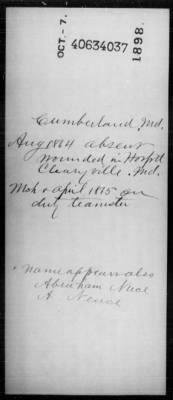 OCT.-7.
40634037
1898.
Cumberland, Md.
Aug 1864 absent
wounded in Hospit
Clearyville. Md.
Mch & April 1865 on
duty teamster
Name appears also
Abraham Nuce
A. Neuce